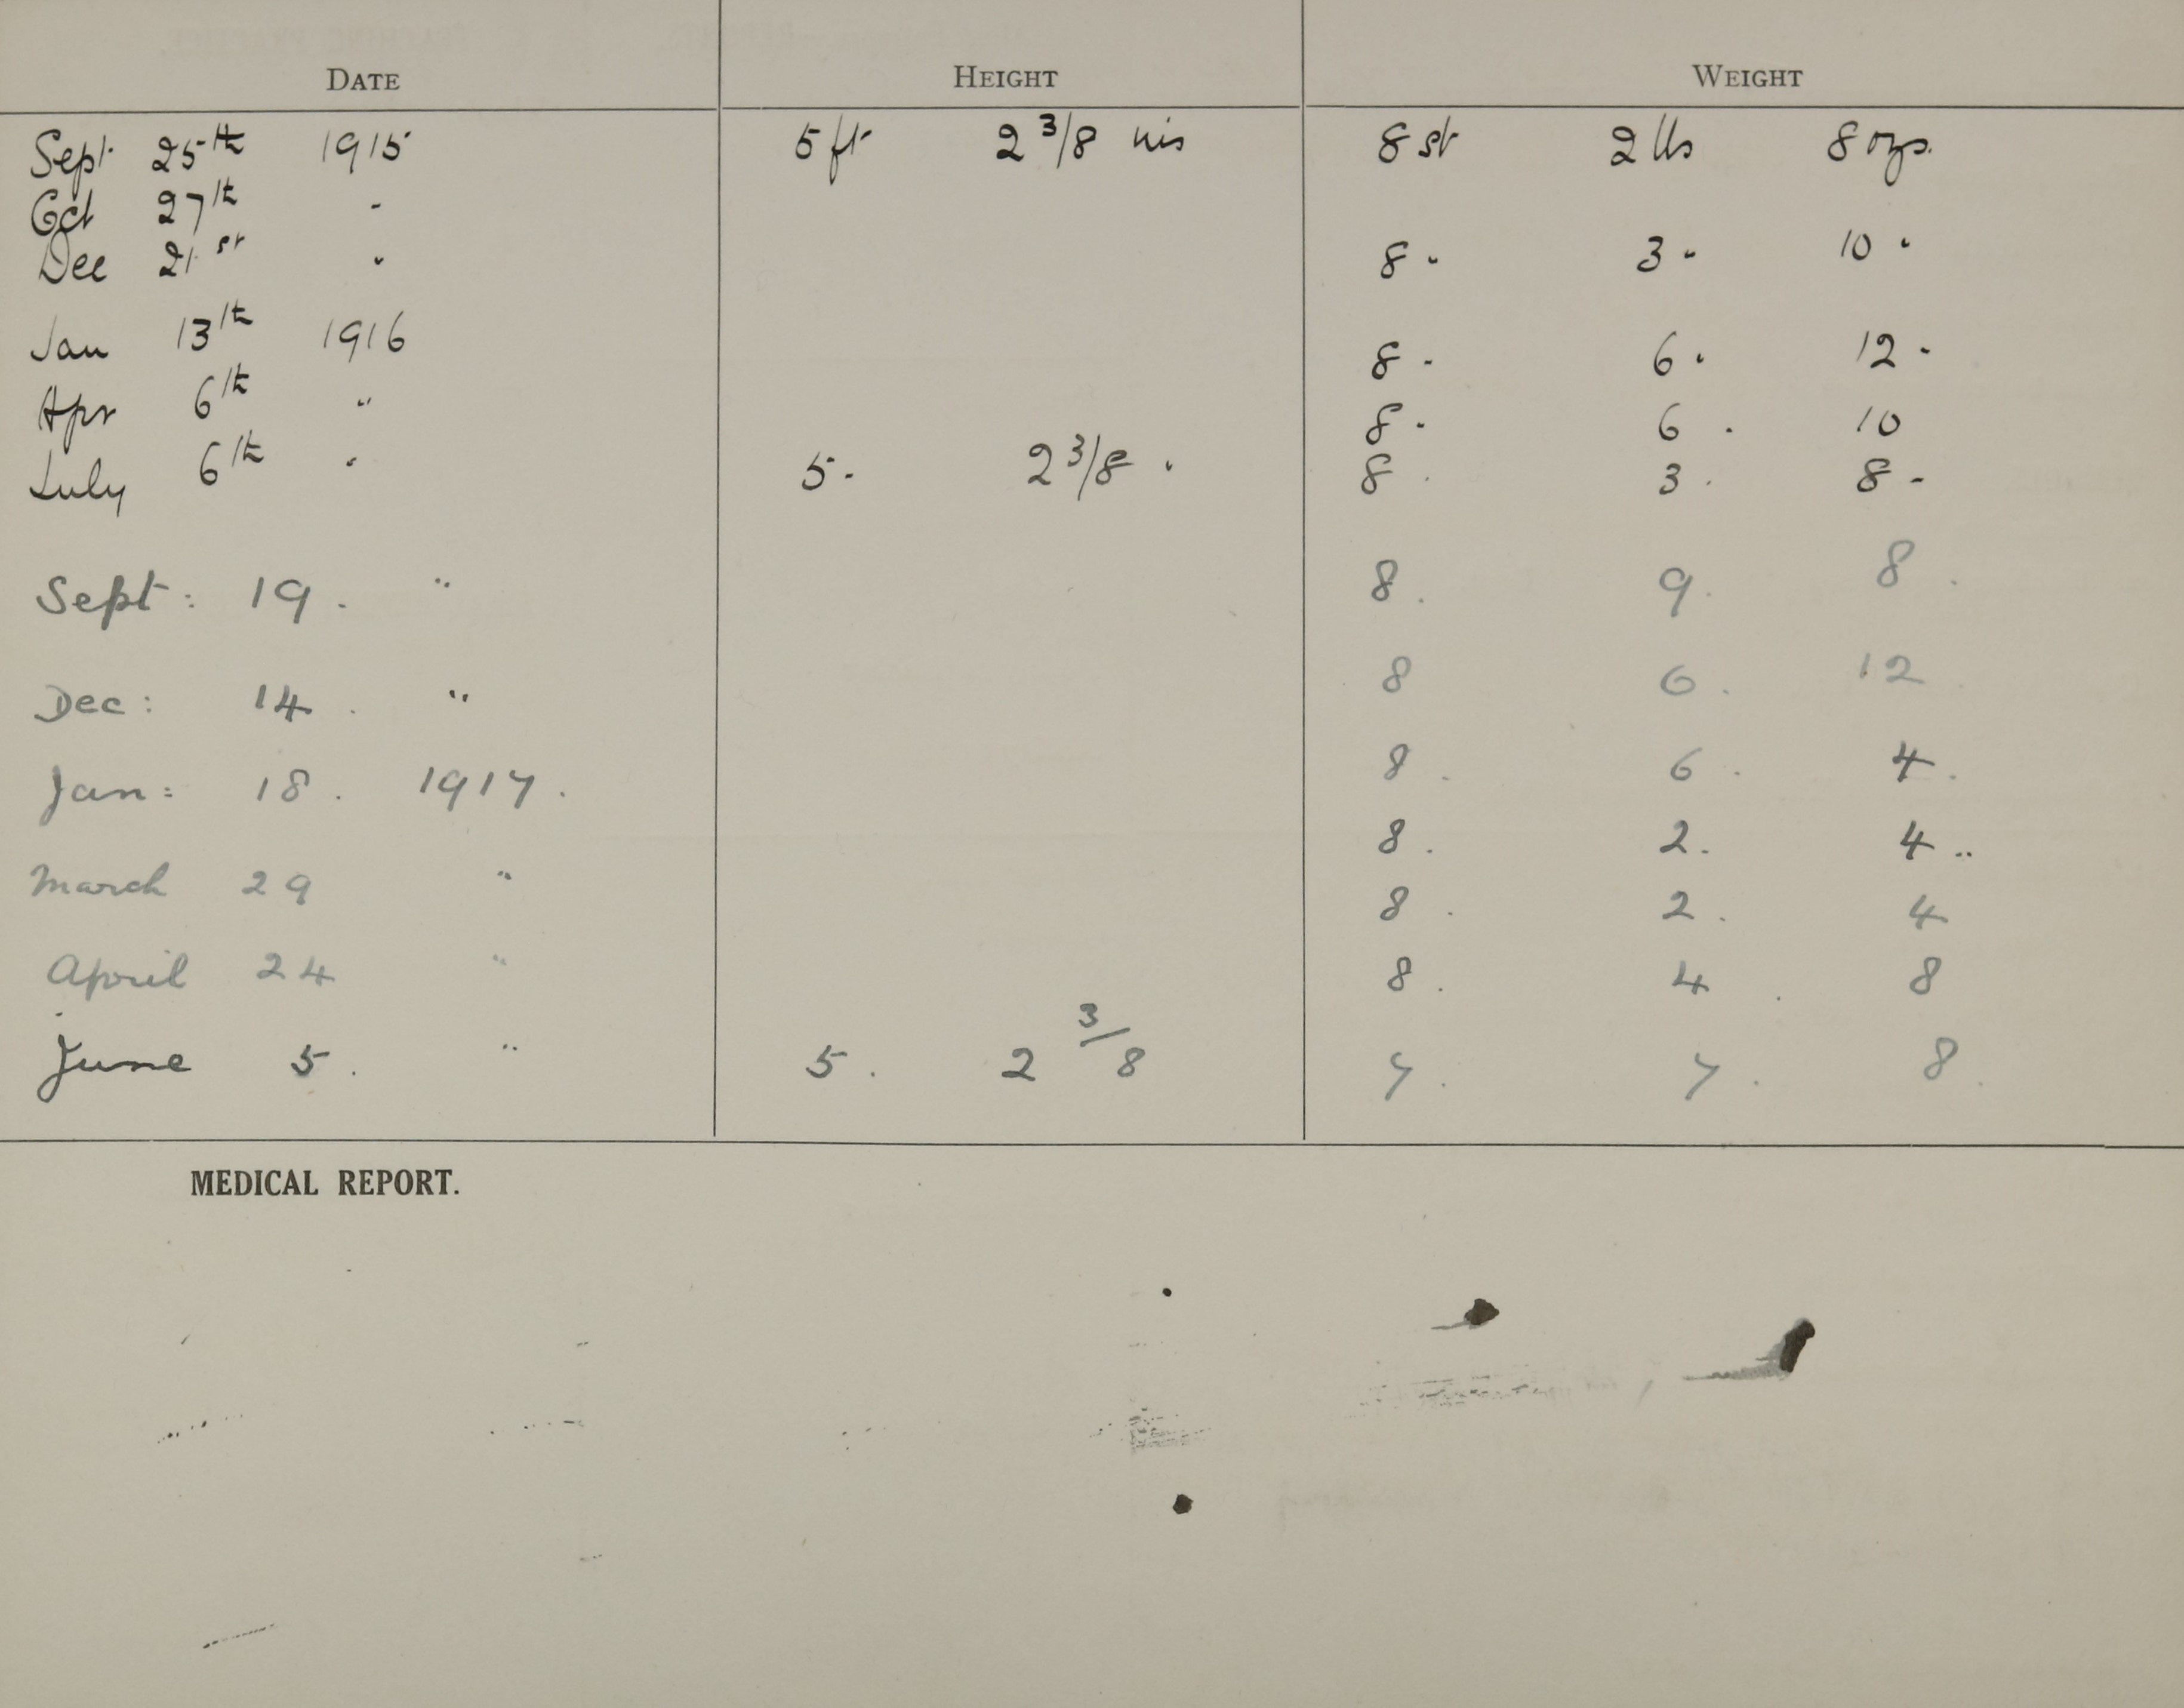 DATE HEIGHT WEIGHT
Sept 25th 1915 5 ft 2 3/8 ins 8 st 2 lbs 8 ozs.
Oct 27th "
Dec 21st " 8 " 3 " 10 "
Jan 13th 1916 8 " 6 " 12 "
Apr 6th " 8 " 6 . 10
July 6th " 5 " 2 3/8 " 8 . 3 . 8 "
Sept: 19. " 8. 9. 8.
Dec: 14. " 8 6. 12.
Jan: 18. 1917. 8. 6. 4.
8. 2. 4 ..
March 29 " 8. 2. 4
April 24 " 8. 4. 8
June 5. " 5. 2 3/8 7. 7. 8.
MEDICAL REPORT.